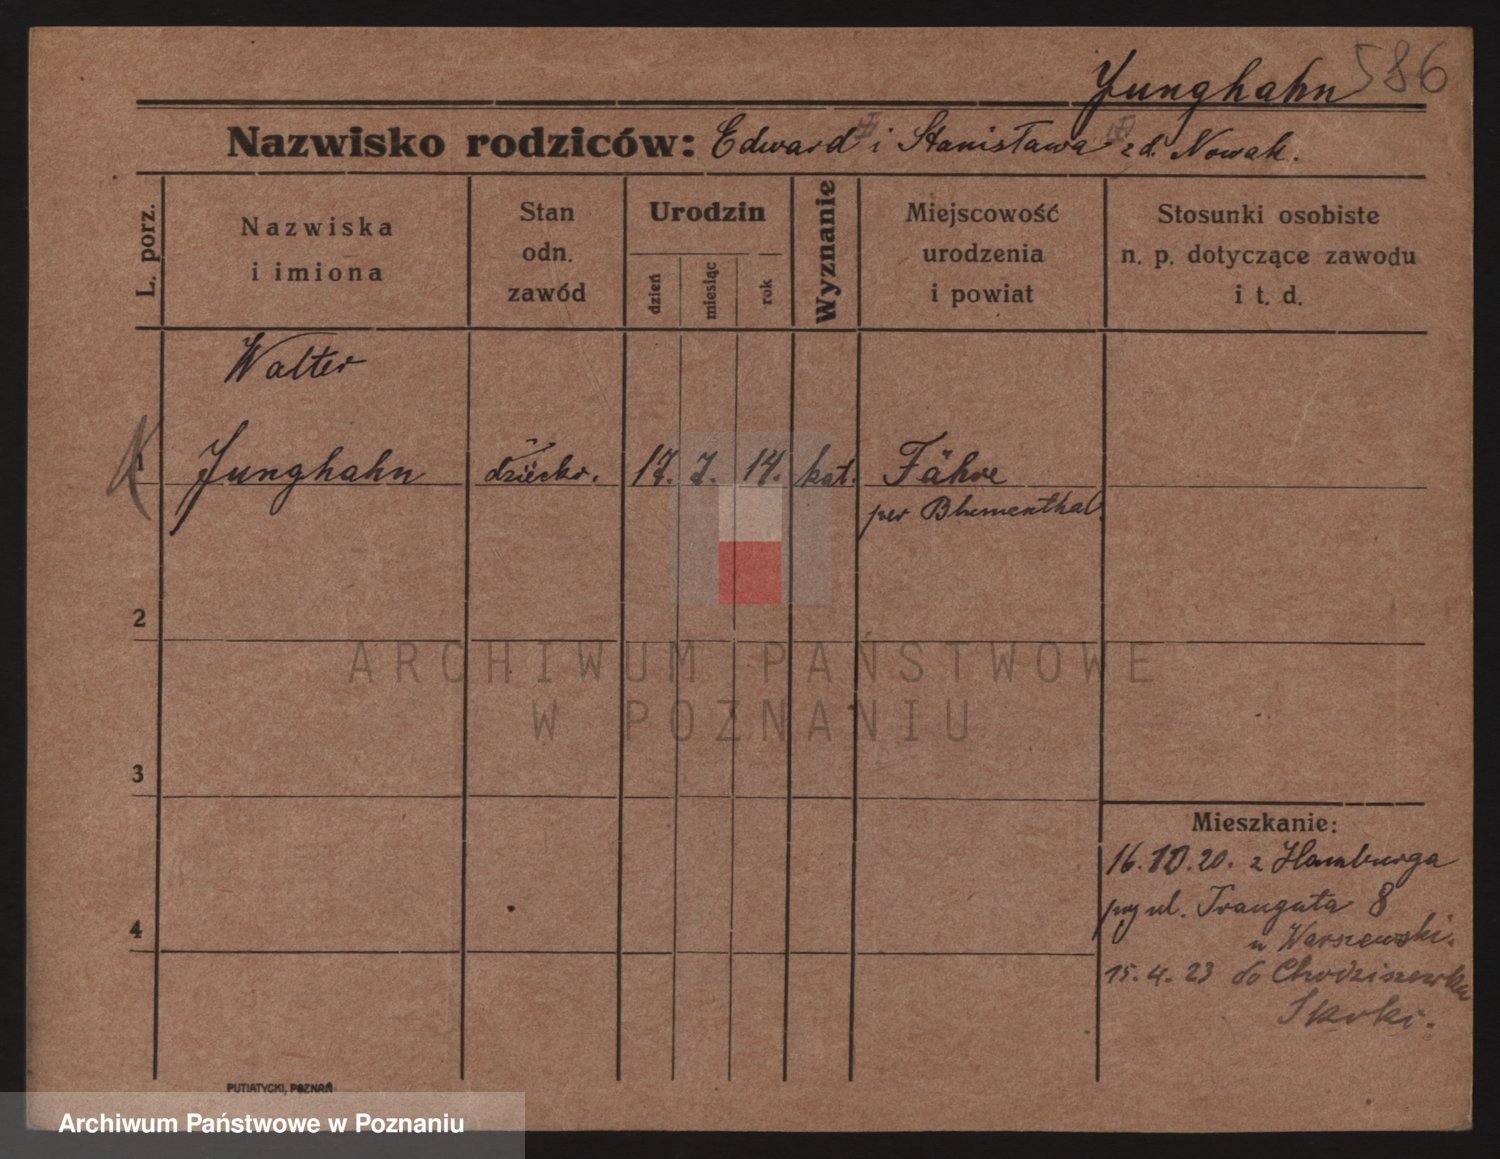 Junghahn 586
Nazwisko rodziców: Edward i Stanisława z d. Nowak.
L. porz.
Nazwiska
i imiona
Stan
odn.
zawód
Urodzin
dzień
miesiąc
rok
Wyznanie
Miejscowość
urodzenia
i powiat
Stosunki osobiste
n. p. dotyczące zawodu
i t. d.
Walter
1 Junghahn dziecko. 17. 7. 14. kat. Fähre
per Blumenthal.
2
3
4
Mieszkanie:
16.10.20. z Hamburga
przy ul. Trauguta 8
u Warszewski.
15.4.23 do Chodziszewka
Skoki.
PUTIATYCKI, POZNAŃ
ARCHIWUM PAŃSTWOWE
W POZNANIU
Archiwum Państwowe w Poznaniu